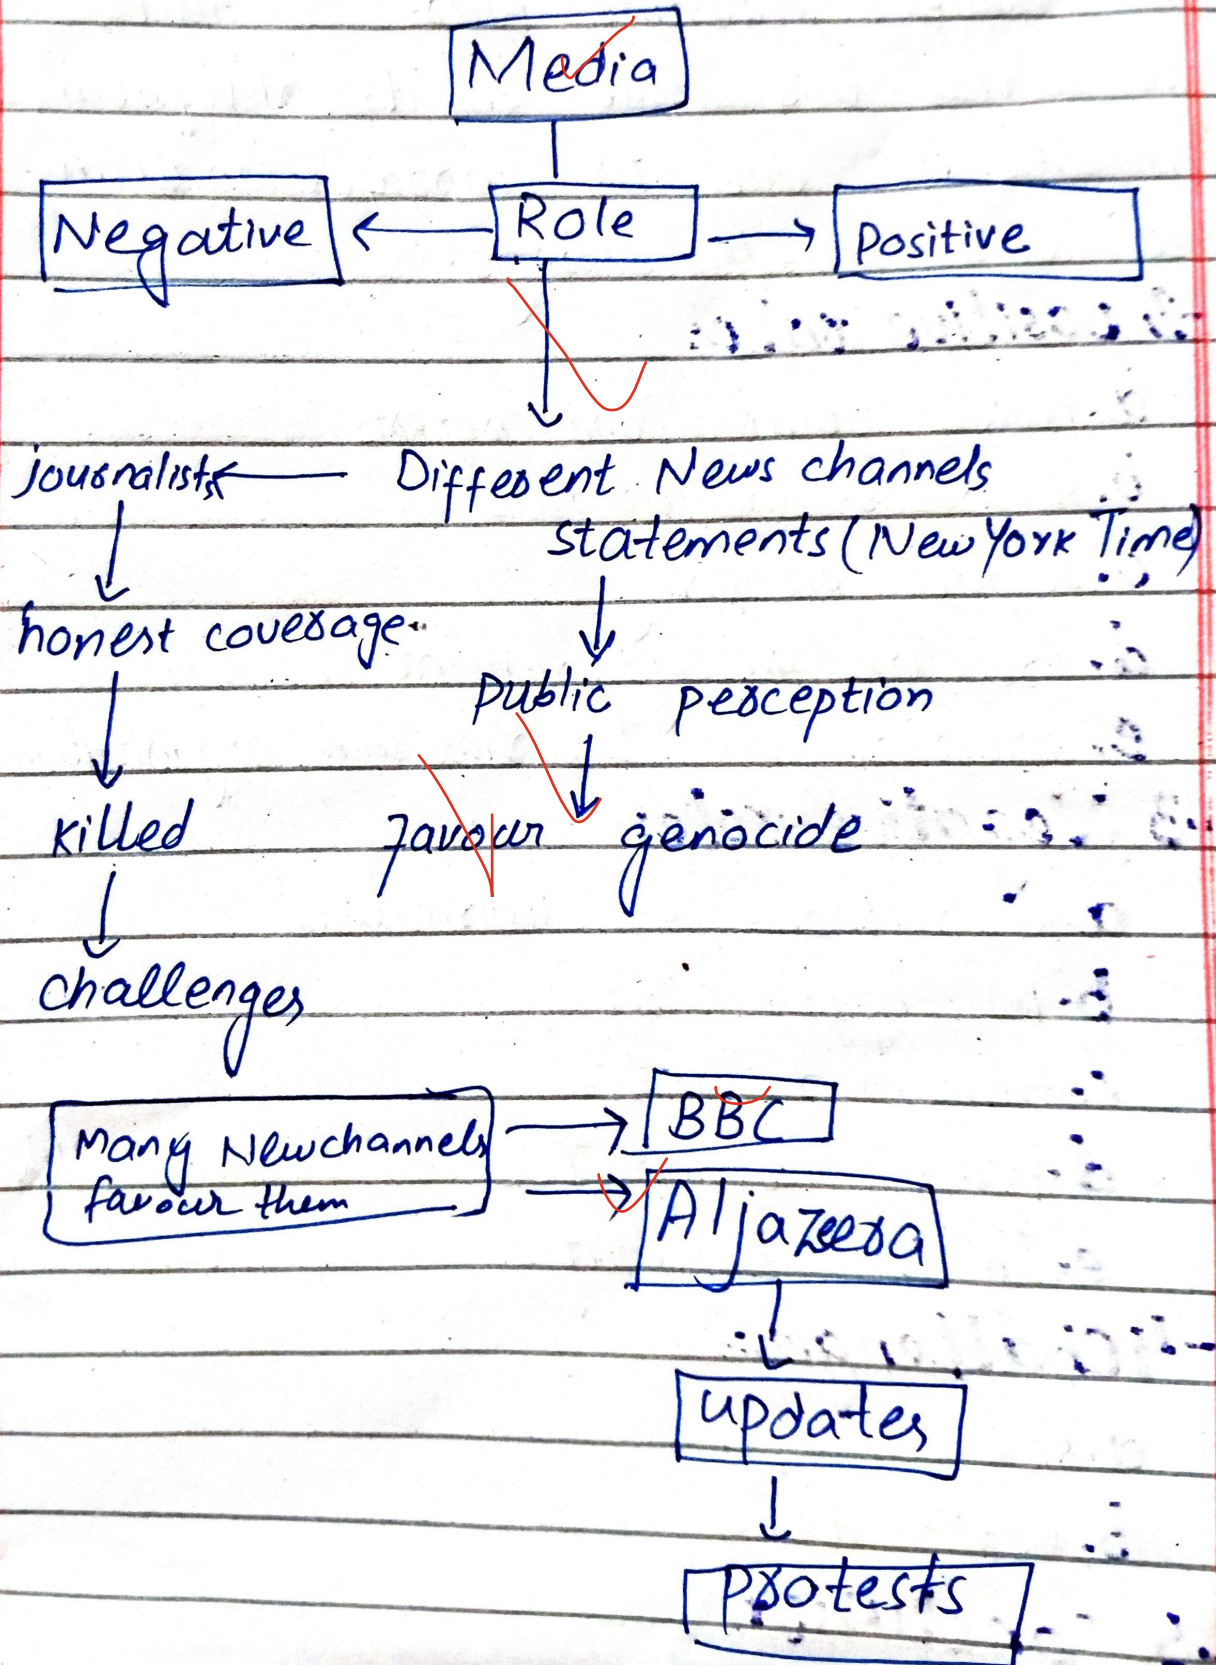 Media
Negative
Role
Positive
journalists
Different News channels
statements (New York Time)
honest coverage
Public perception
killed
favour genocide
challenges
Many Newchannels
favour them
BBC
Aljazeera
updates
protests